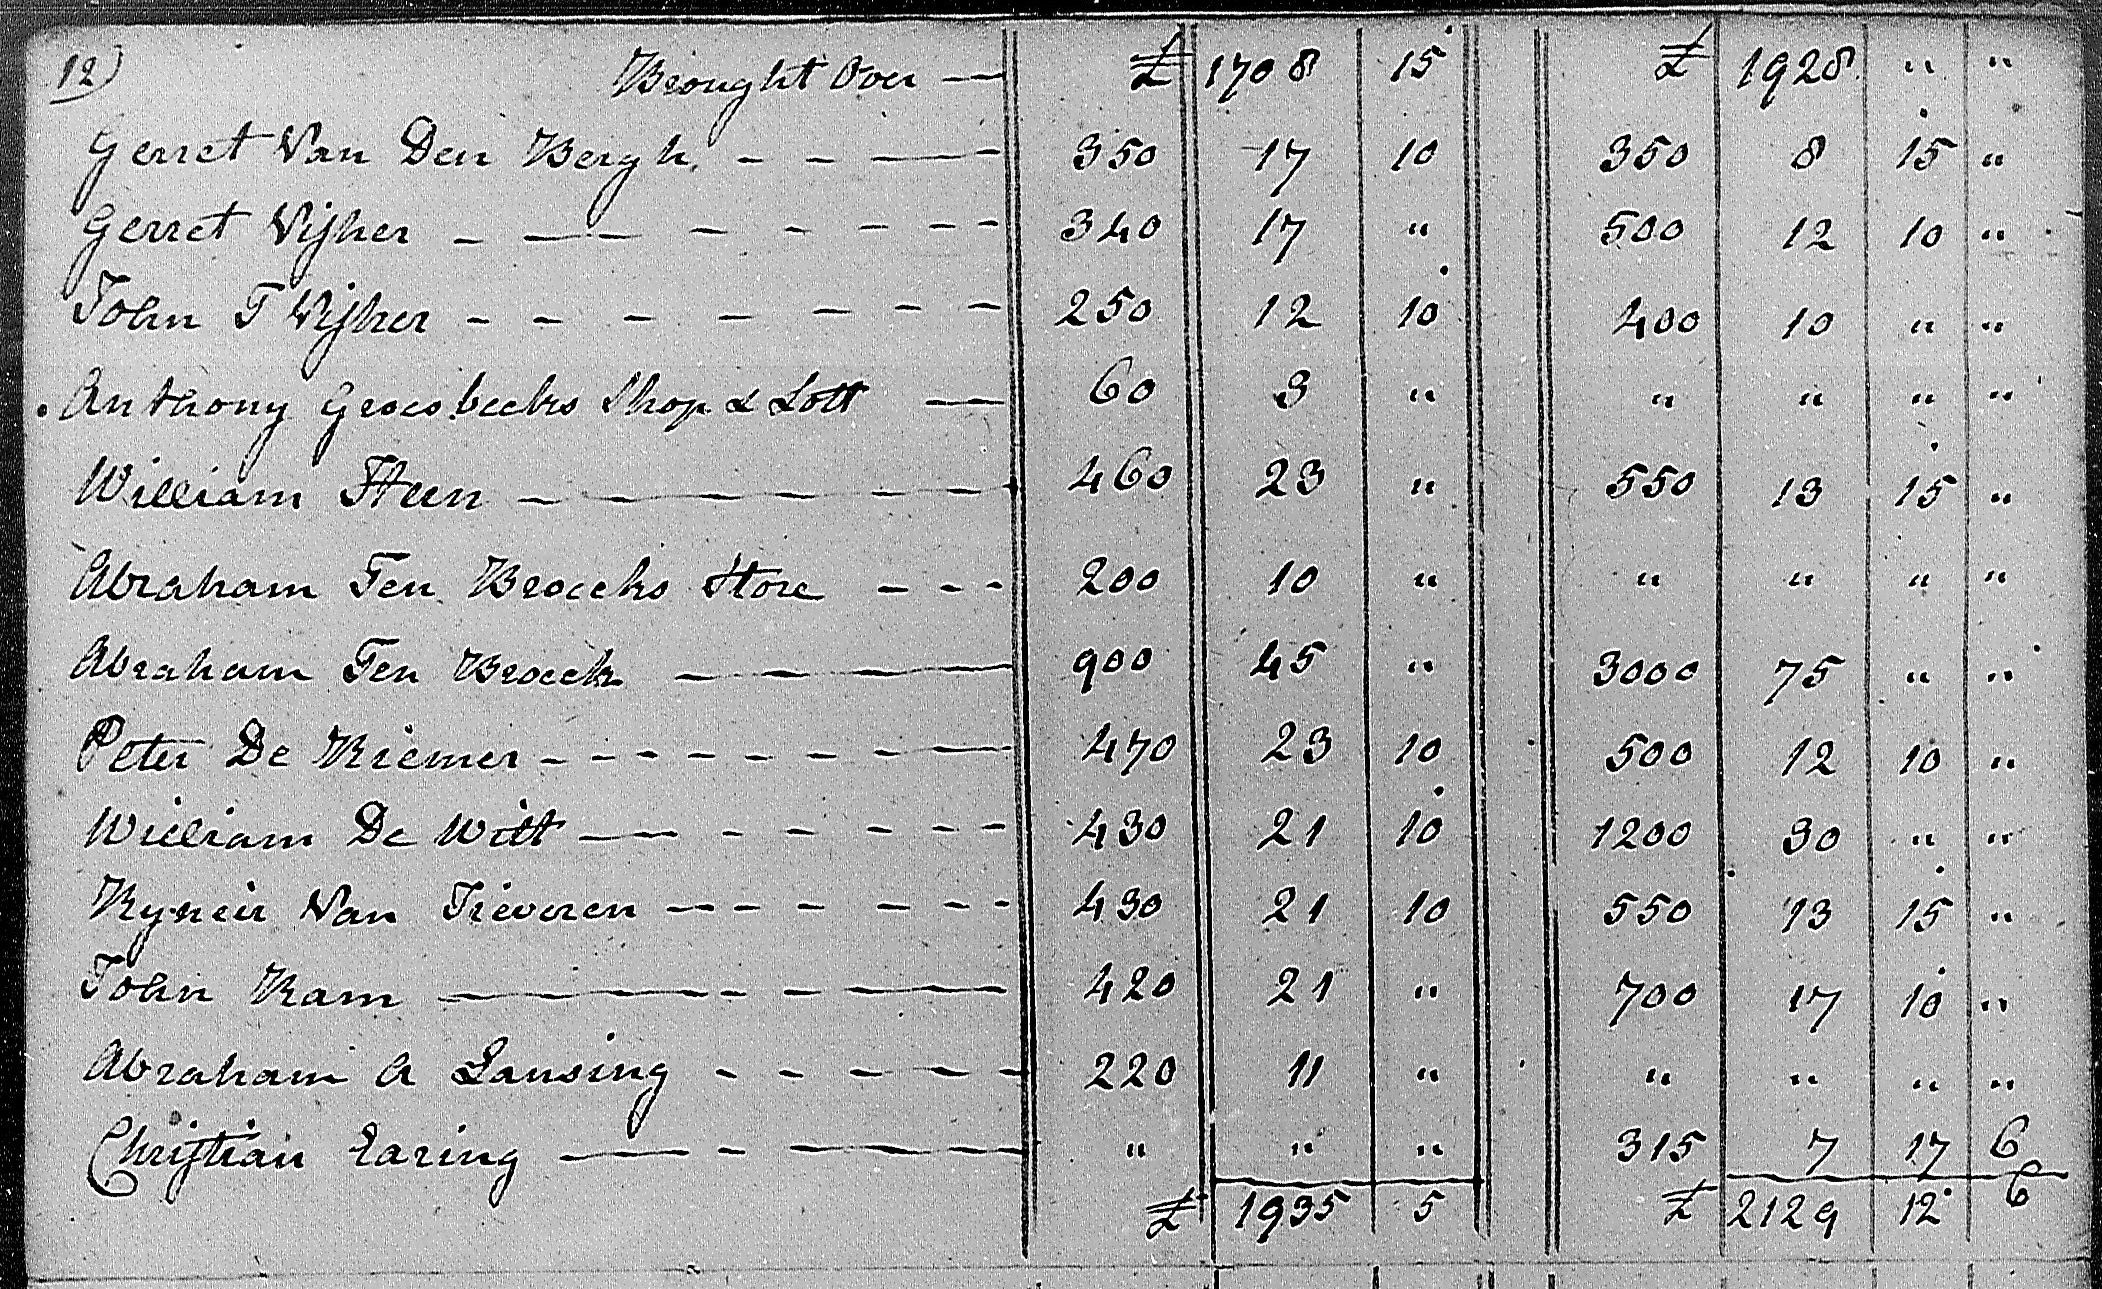 12) Brought Over — £ 1708 15 £ 1928 " "
Gerret Van Den Bergh. - - — 350 17 10 350 8 15 "
Gerret Vijher - — - - - - - 340 17 " 500 12 10 "
John T Vijher - - - - - - - 250 12 10 400 10 " "
Anthony Groesbeeks Shop & Lott — 60 3 " " " " "
William Steen - — - - - 460 23 " 550 13 15 "
Abraham Ten Broecks Store - - - 200 10 " " " " "
Abraham Ten Broeck — — — 900 45 " 3000 75 " "
Peter De Riemer - - - - - - — 470 23 10 500 12 10 "
William De Witt — - - - - - 430 21 10 1200 30 " "
Ryneir Van Ieveren — - - - - - 430 21 10 550 13 15 "
John Ram — - - — 420 21 " 700 17 10 "
Abraham A Lansing - - - - - 220 11 " " " " "
Christian Earing — - — " " " 315 7 17 6
£ 1935 5 £ 2129 12 6